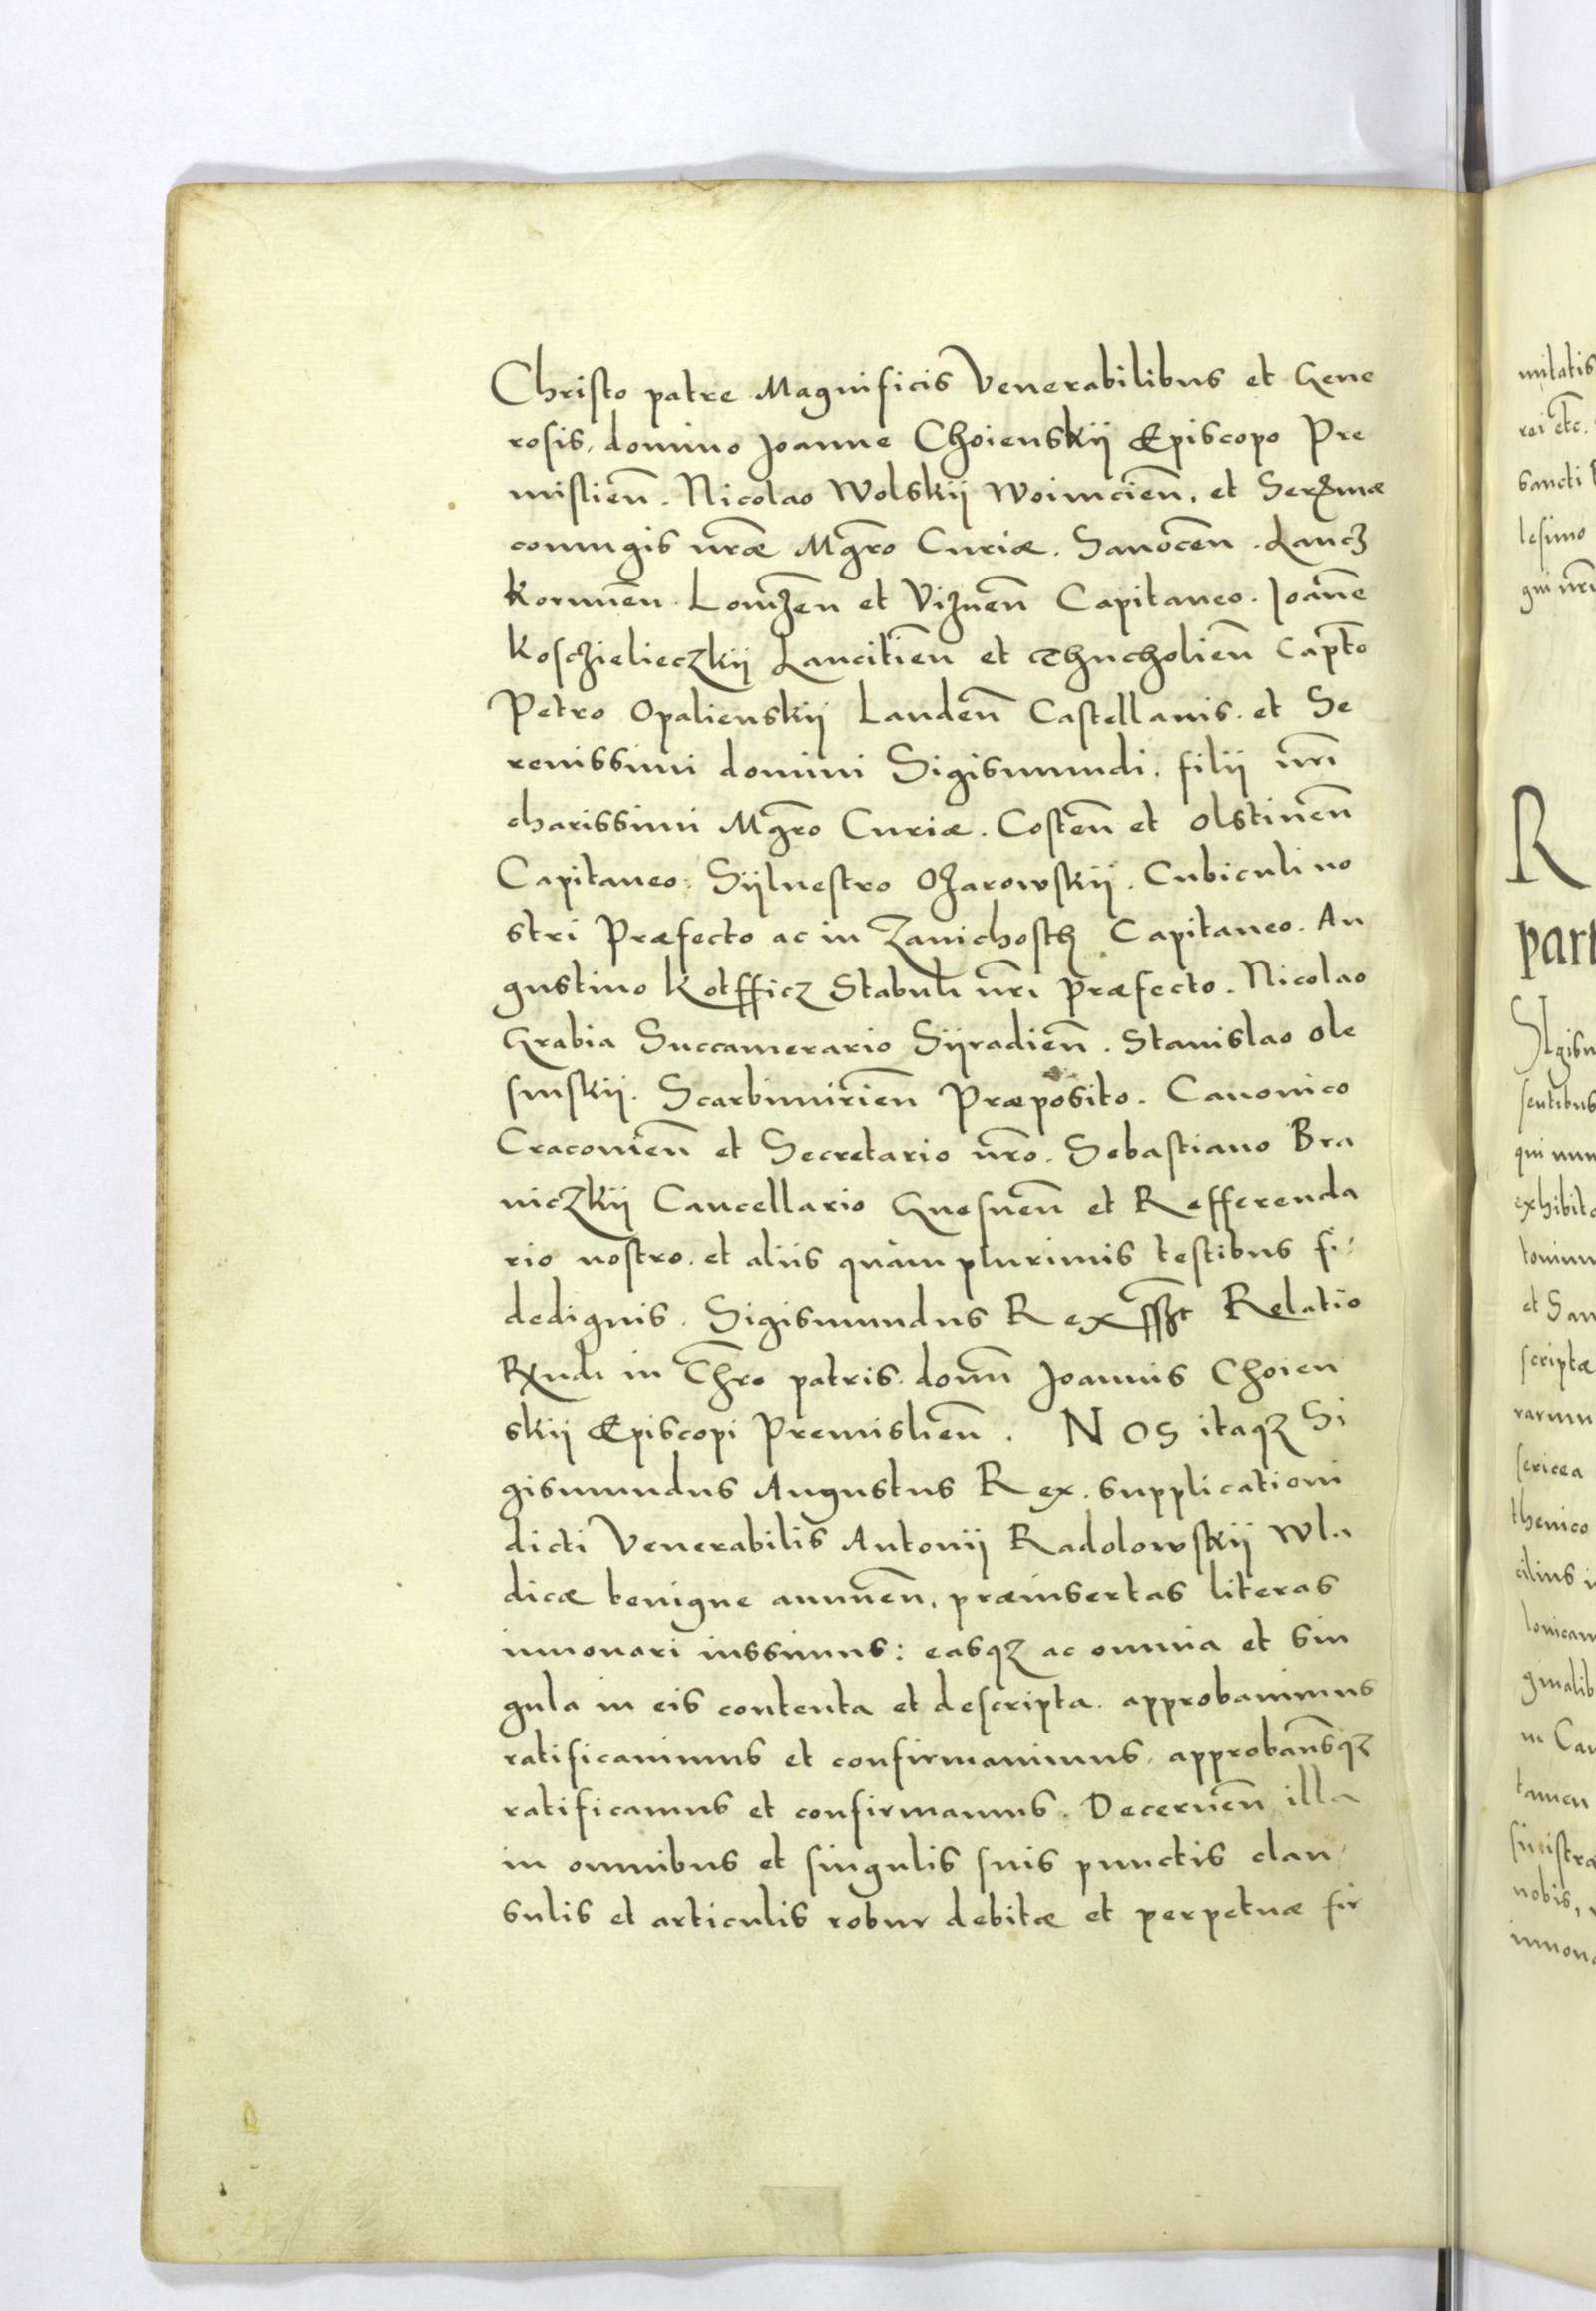 Christo patre. Magnificis Venerabilibus et Gene
rosis, domino Joanne Choienskij Episcopo Pre
mislień. Nicolao Wolskij Woinicień. et Serꝫmæ
coniugis nr̃æ Mgr̃o Curiæ. Sanoceń. Lancz
koruneń Lomzeń et Vizneń Capitaneo. Joãne
Kosczielieczkij Lancitień et Thucholień Capt̃o
Petro Opalienskij Landeń Castellanis. et Se
renissimi domini Sigismundi. filii nr̃i
charissimi Mgr̃o Curiæ. Costeń et Olstineń
Capitaneo. Sijluestro Ozarowskij. Cubiculi no
stri Præfecto ac in Zanichosth Capitaneo. Au
gustino Kotfficz Stabuli nr̃i Præfecto. Nicolao
Grabia Succamerario Sijradień. Stanislao Ole
sinskij. Scarbimirień Præposito. Canonico
Cracouień et Secretario nr̃o. Sebastiano Bra
niczkij Cancellario Gnesneń et Refferenda
rio nostro. et aliis quam plurimis testibus fi
dedignis. Sigismundus Rex sszt Relatio
Rxndi in Chr̃o patris. domñ Joannis Choien
skij Episcopi Premislień. NOS itaqꝫ Si
gismundus Augustus Rex. supplicationi
dicti Venerabilis Antonij Radolowskij Wla
dicæ benigne annueń, præinsertas literas
innouari iussimus: easqꝫ ac omnia et sin
gula in eis contenta et descripta. approbauimus
ratificauimus et confirmauimus, approbam̃sqꝫ
ratificamus et confirmamus. Decerneń illa
in omnibus et singulis suis punctis clau
sulis et articulis robur debitæ et perpetuæ fir